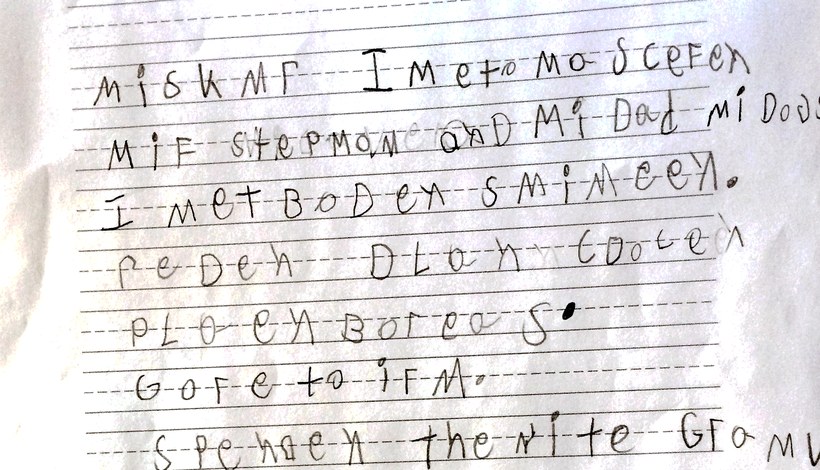 MiSK MF I Met mo ScEFen
MiF StePMOM anD Mi Dad Mi Dods
I Met BoDen SMiMeen.
PeDen DLan CDoten
PLaenBoreaS.
GoFe to iFM.
SPenden the Nite GFaMu